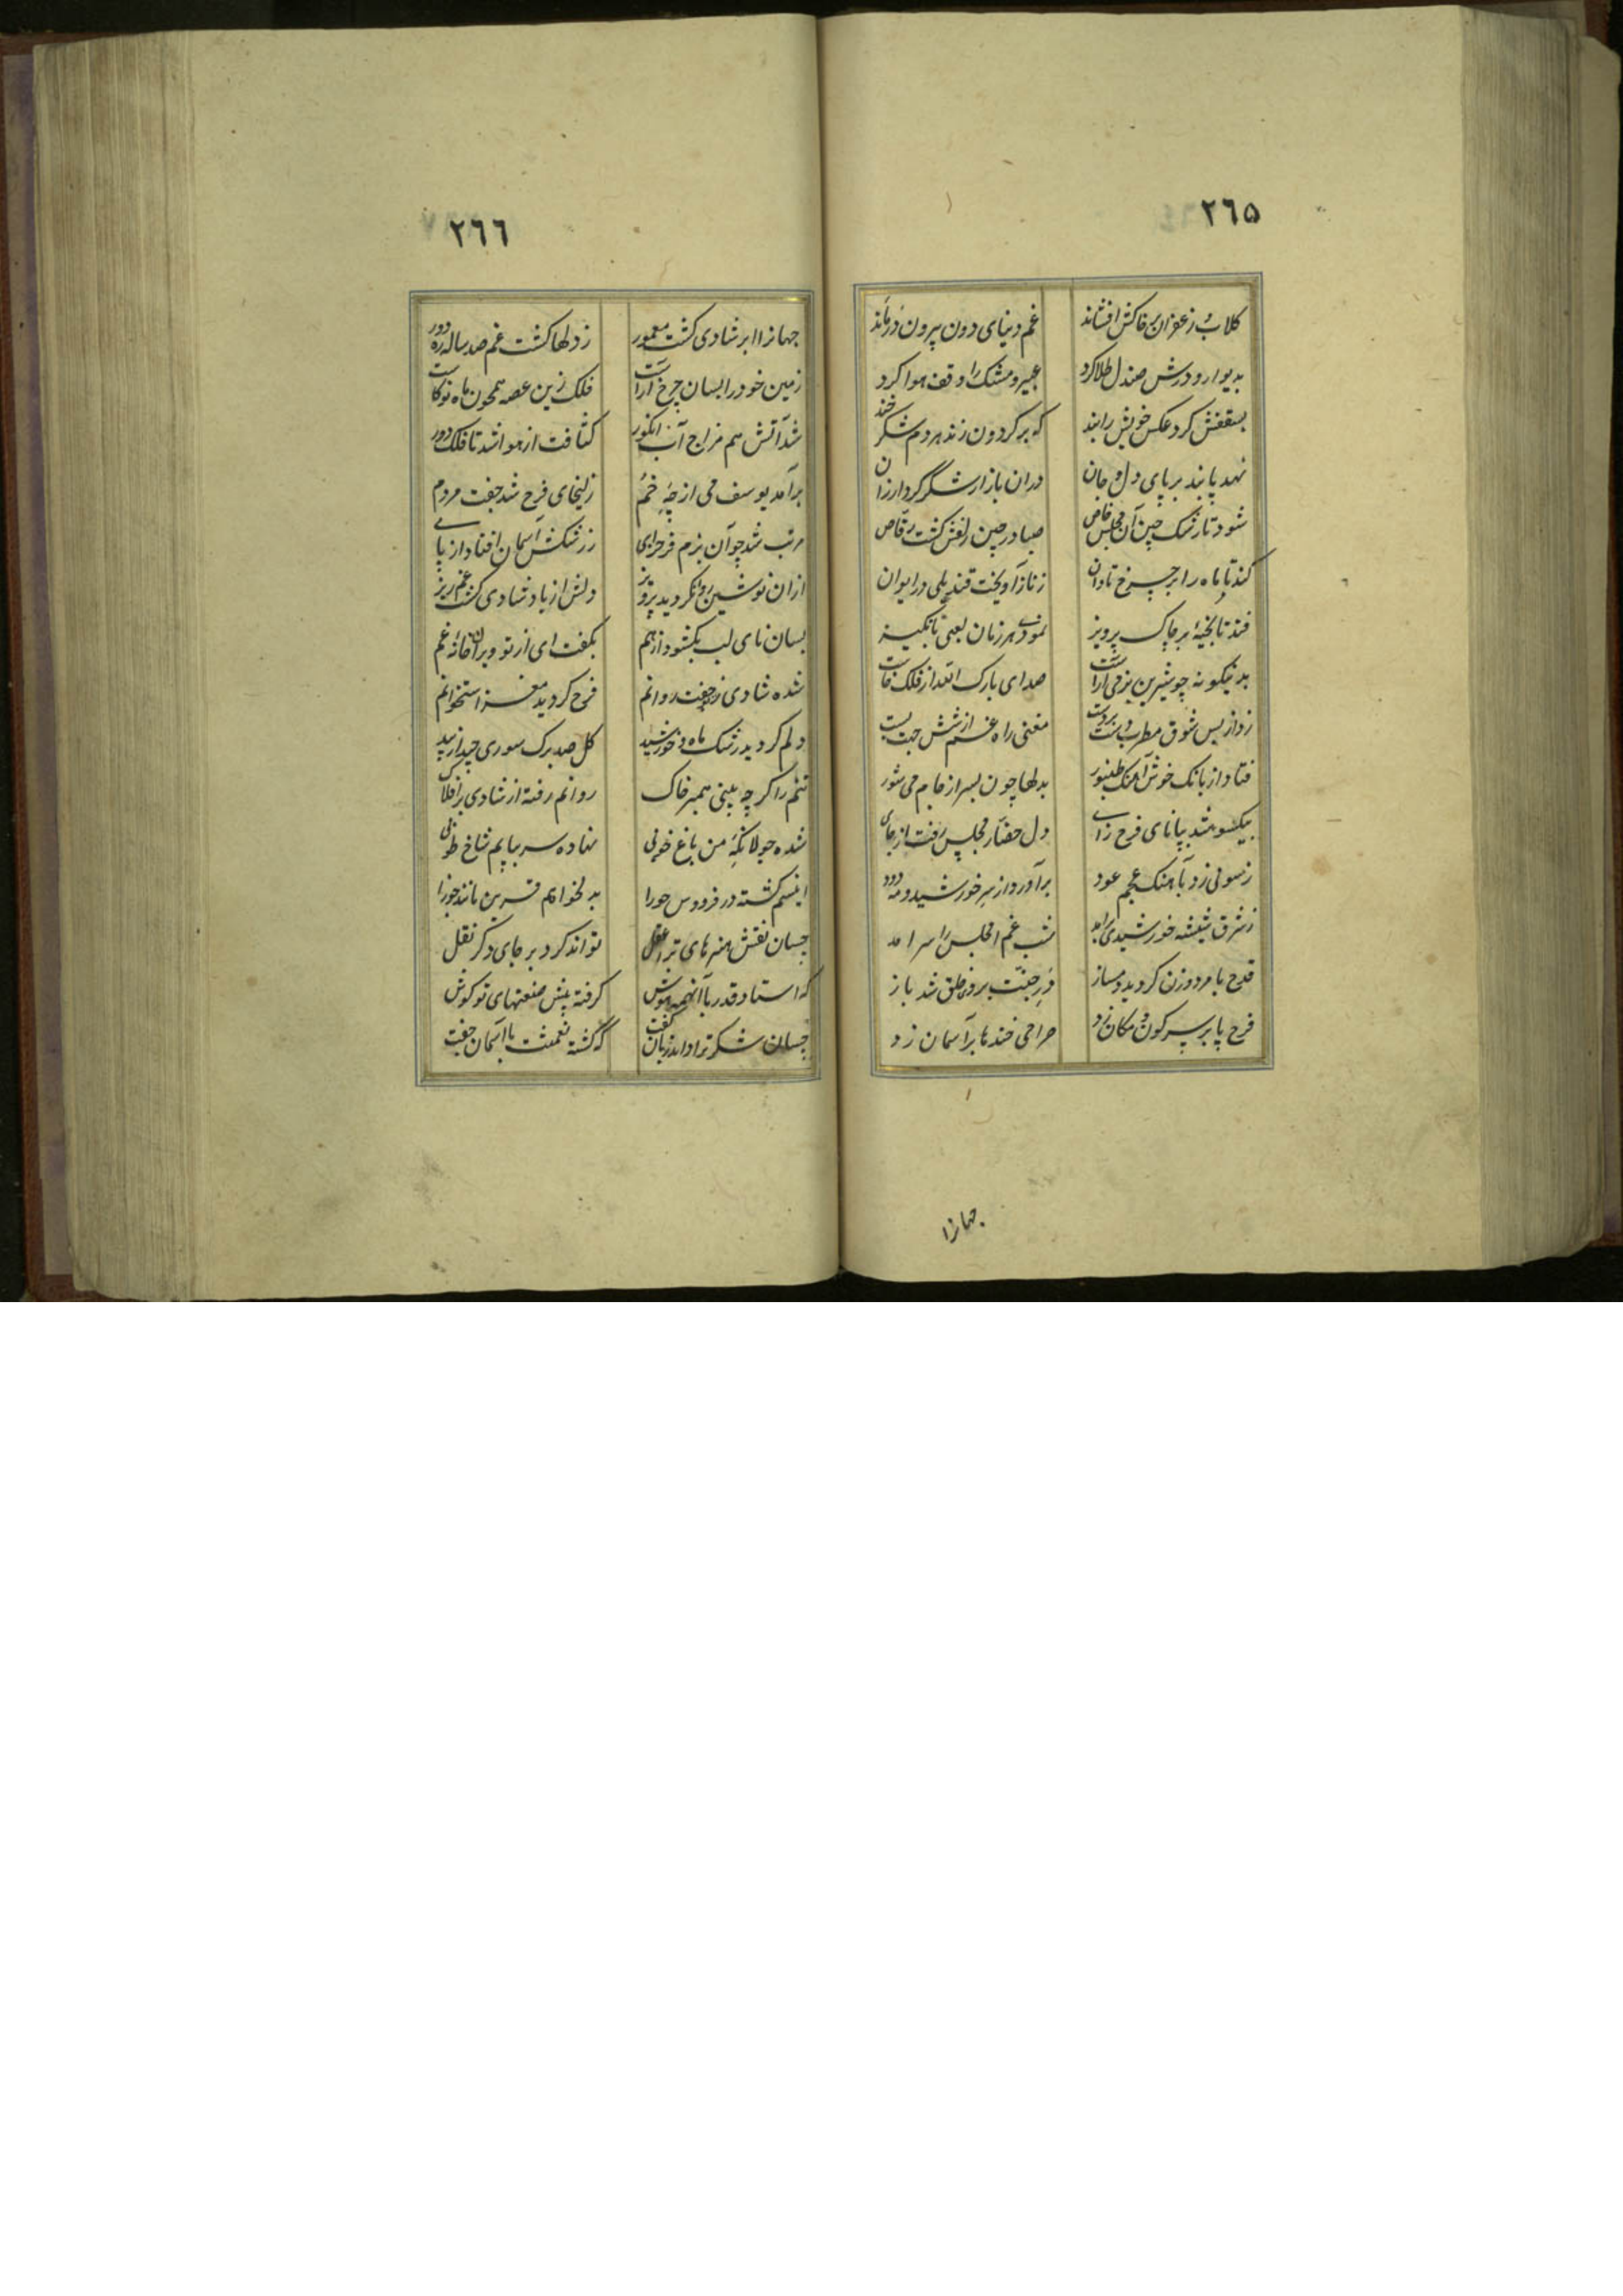 ۲٦۵
کلاب و زعفران بر خاکش افشاند غم دنیای دون بیرون در ماند
بدیوار و درش صندل طلا کرد عبیر و مشک را وقف هوا کرد
بسقفش کرد عکس خویش را بند که بر کردون زند هر دم شکر خند
نهد پا بند بر پای دل و جان دران بازار شکر کرد ارزان
شود تا رشک چین آن مجلس خاص صبا در چین زلفش کشت رقاص
کند تا ماه را بر چرخ تاوان ز ناز آویخت قندیلی در ایوان
فتد تا بخیهٔ بر چاک پرویز نمودی هر زمان لعبی
بدینکونه چو شیرین بزمی آراست صدای بارک الله از فلک خاست
زد از بس شوق مطرب دست بر دست مغنی راه غم از شش جهت بست
فتاد از بانک خوش آهنک طنبور بدلها چون بسر از جام می شور
بیکسو شد بپا نای فرح زای دل حضار مجلس رفت از جای
ز سوئی زد بآهنک عجم عود برآورد از سر خورشید و مه دود
ز شرق شیشه خورشیدی برآمد شب غم اهل مجلس را سرآمد
قدح با مرد و زن کردید دمساز در جنت بروی خلق شد باز
فرح پا بر سر کون و مکان زد صراحی خندها بر آسمان زد
جهانرا
۲٦٦
جهانرا ابر شادی کشت معمور ز دلها کشت غم صد ساله ره دور
زمین خود را بسان چرخ آراست فلک زین غصه همچون ماه نو کاست
شد آتش هم مزاج آب انکور کثافت از هوا شد تا فلک دور
برآمد یوسف می از چه خم زلیخای فرح شد جفت مردم
مرتب شد چو آن بزم فرحزای ز رشکش آسمان افتاد از پای
ازان نوشین روان کردید پرویز دلش از باد شادی کشت غم ریز
بسان نای لب بکشود از هم بکفت ای از تو ویران خانهٔ غم
شده شادی ز جفت روانم فرح کردید مغز استخوانم
دلم کردید رشک ماه و خورشید کل صد برک سوری چید از بید
تنم را کر چه بینی همسر خاک روانم رفته از شادی بر افلاک
شده جولانکه من باغ خوبی نهاده سر بپایم شاخ طوبی
انیسم کشته در فردوس حورا بدلخواهم قرین مانند جوزا
چسان نقش هنرهای ترا عقل تواند کرد بر جای دکر نقل
که استاد قدر با آنهمه هوش کرفته پیش صنعتهای تو کوش
چسان شکر ترا داند زبان کفت که کشته نعمتت با آسمان جفت